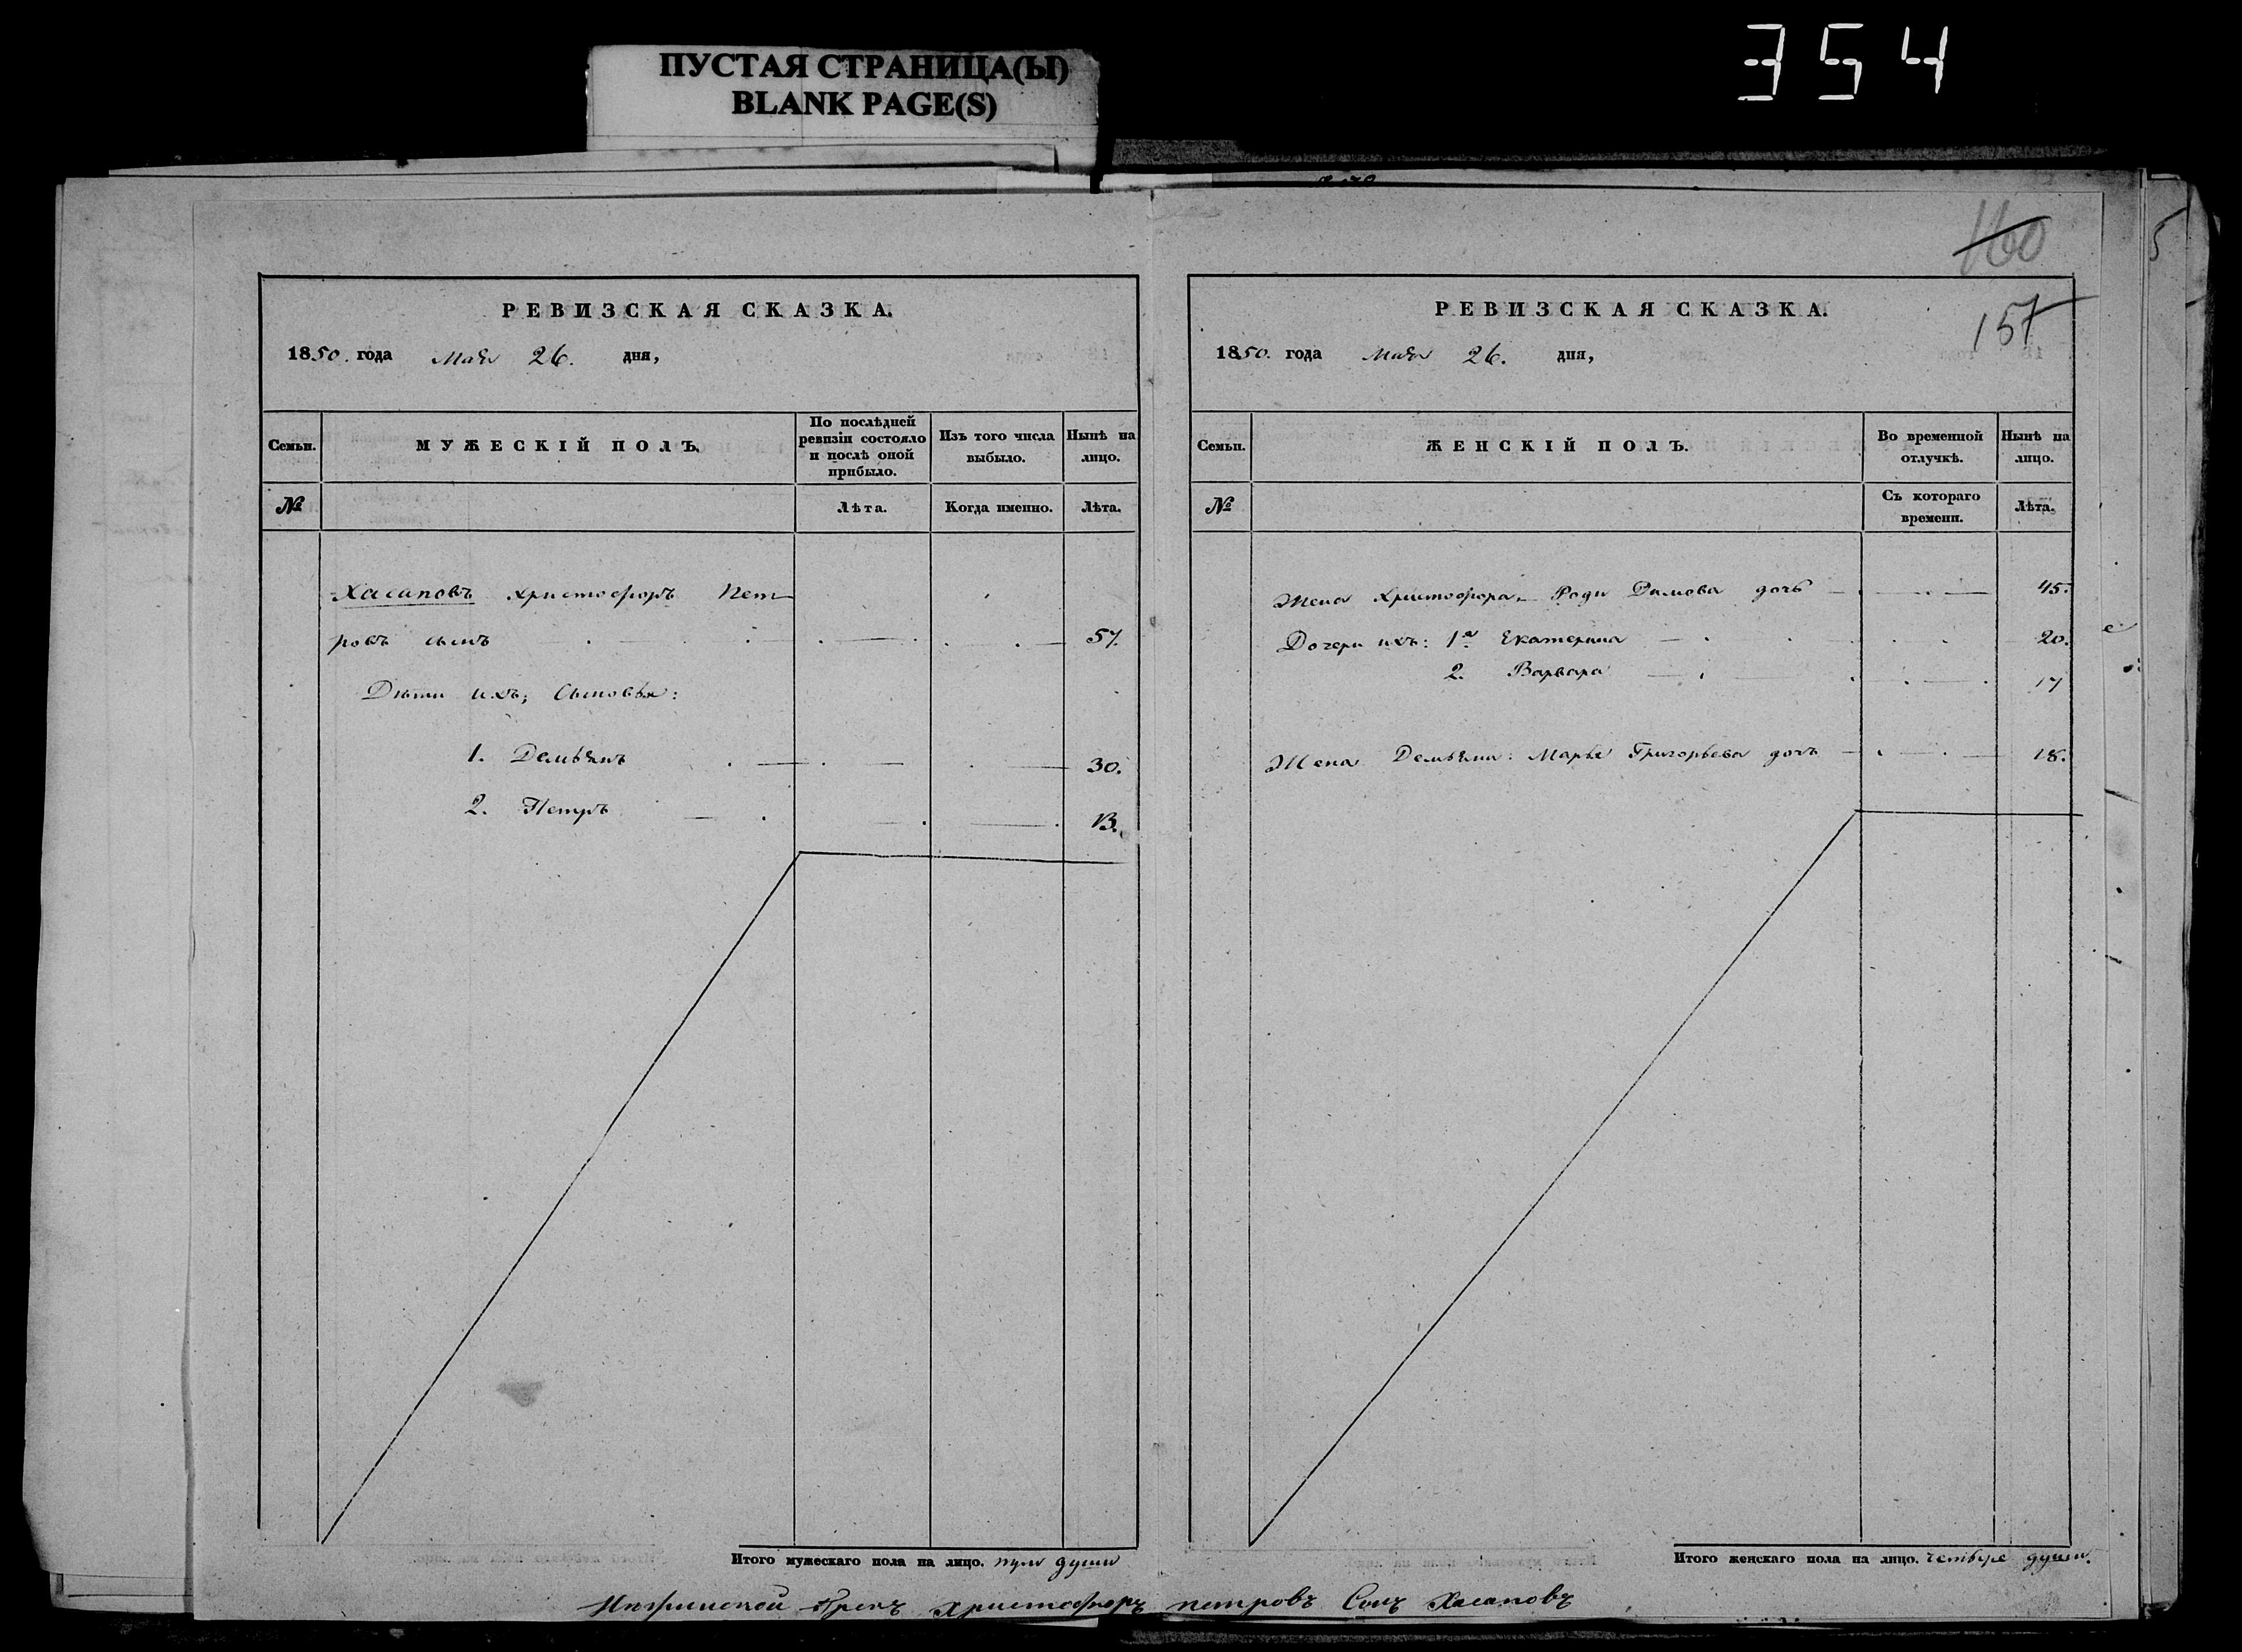 354
ПУСТАЯ СТРАНИЦА(Ы)
BLANK PAGE(S)
160
157
РЕВИЗСКАЯ СКАЗКА.
1850. года Мая 26. дня,
Семьи.
МУЖЕСКІЙ ПОЛЪ.
По послѣдней ревизіи состояло и послѣ оной прибыло.
Изъ того числа выбыло.
Нынѣ на лицо.
№
Лѣта.
Когда именно.
Лѣта.
Хасаповъ Христофоръ Пет-
ровъ сынъ 57.
Дѣти ихъ; Сыновья:
1. Демьянъ 30.
2. Петръ 13.
Итого мужескаго пола на лицо. три души
РЕВИЗСКАЯ СКАЗКА.
1850. года Мая 26. дня,
Семьи.
ЖЕНСКІЙ ПОЛЪ.
Во временной отлучкѣ.
Нынѣ на лицо.
№
Съ котораго времени.
Лѣта.
Жена Христофора, Роди Димова дочь 45.
Дочери ихъ: 1я Екатерина 20.
2. Варвара 17
Жена Демьяна: Марья Григорьева дочь 18.
Итого женскаго пола на лицо. четыре души.
Нѣжинской Грекъ Христофоръ петровъ Сынъ Хасаповъ